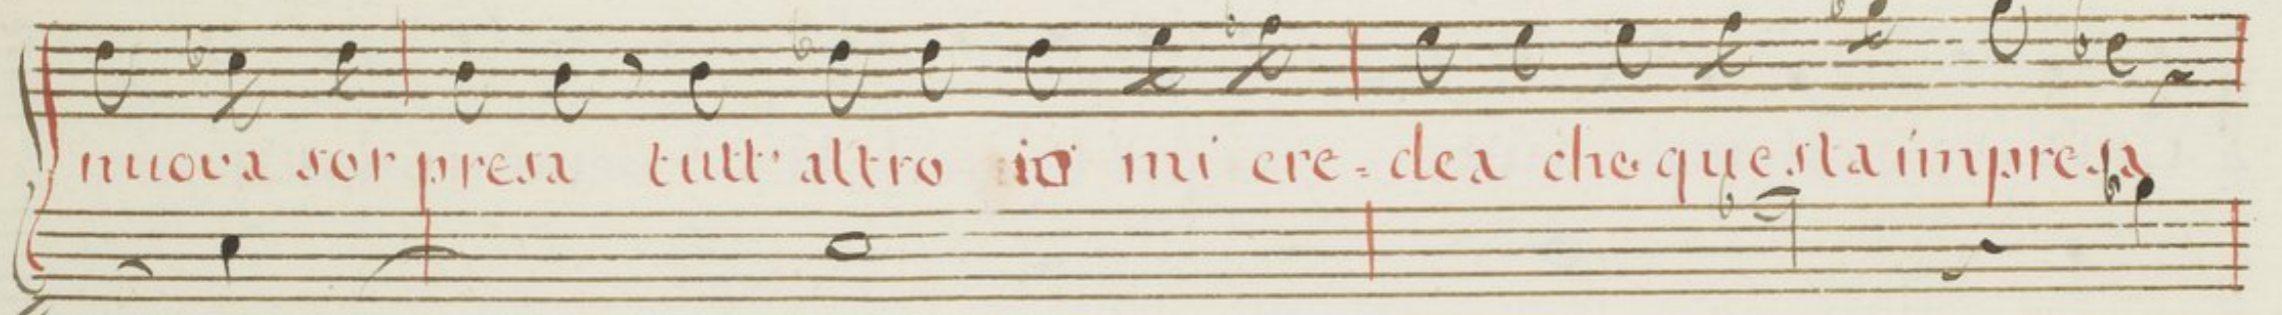 nuova sorpresa tutt' altro io mi cre=dea che questa impresa